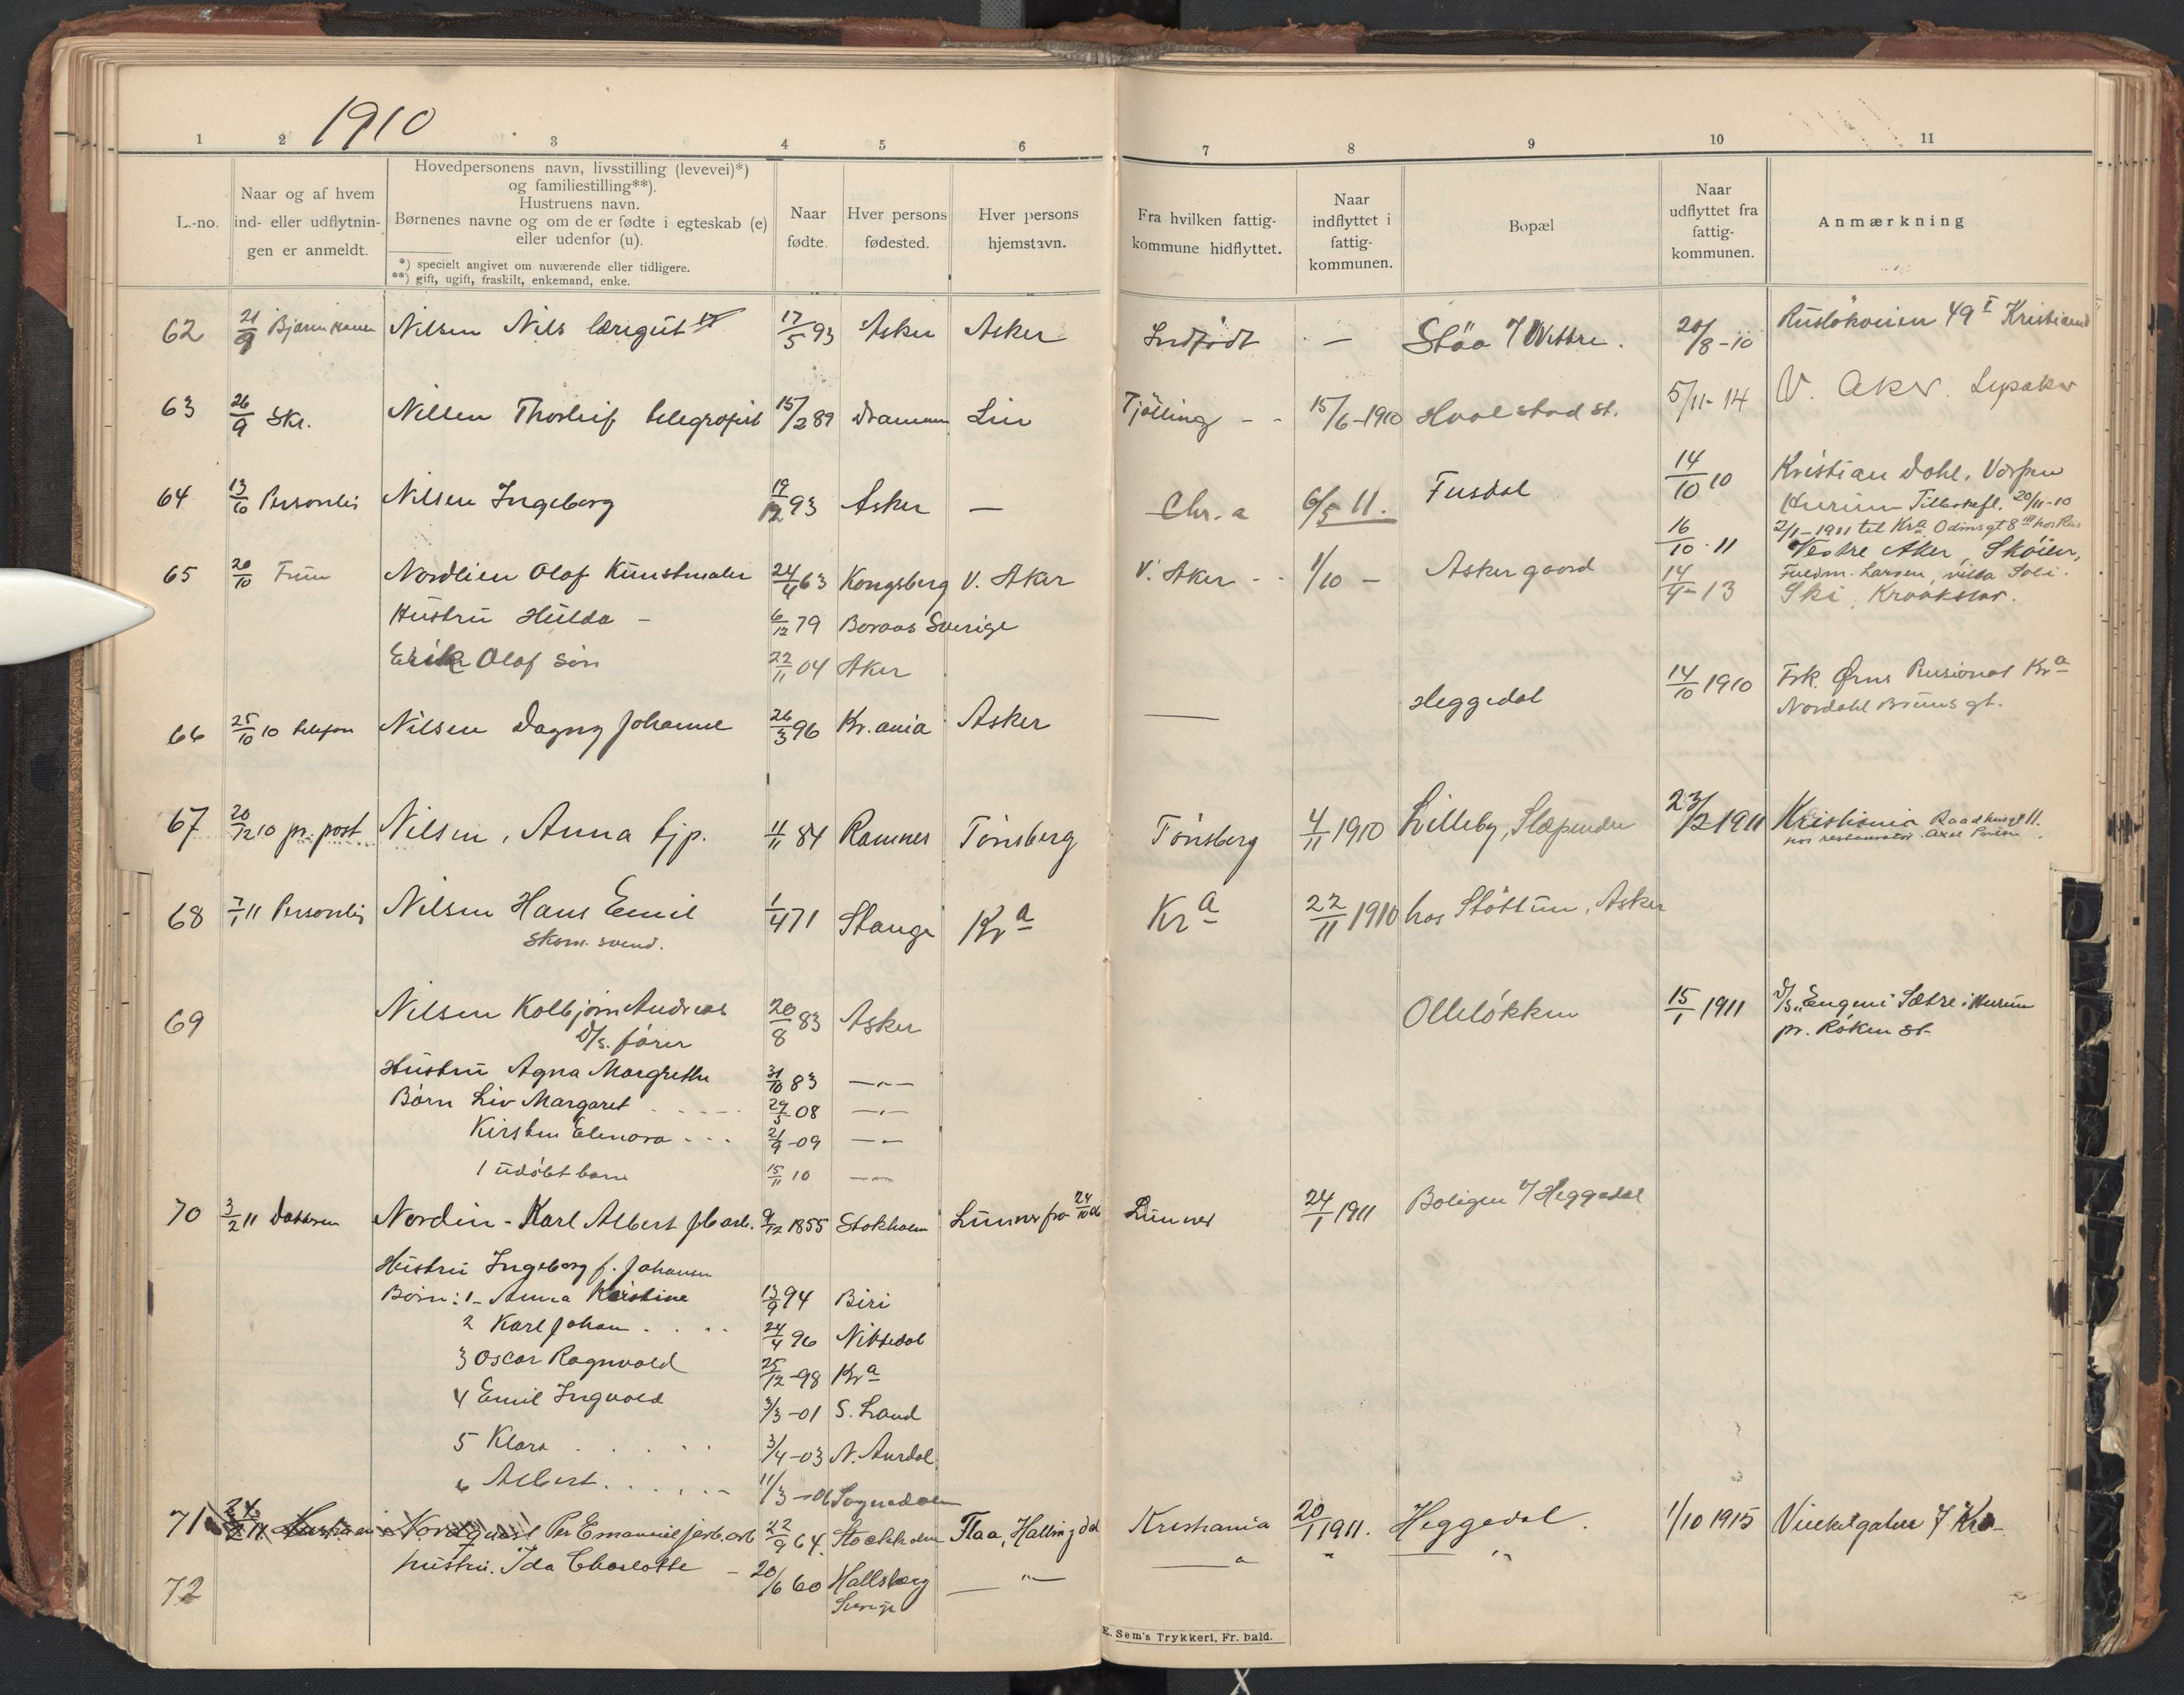 1910
1 2 3 4 5 6 7 8 9 10 11
L.-no.
Naar og af hvem
ind- eller udflytnin-
gen er anmeldt.
Hovedpersonens navn, livsstilling (levevei)*)
og familiestilling**).
Hustruens navn.
Børnenes navne og om de er fødte i egteskab (e)
eller udenfor (u).
*) specielt angivet om nuværende eller tidligere.
**) gift, ugift, fraskilt, enkemand, enke.
Naar
fødte.
Hver persons
fødested.
Hver persons
hjemstavn.
Fra hvilken fattig-
kommune hidflyttet.
Naar
indflyttet i
fattig-
kommunen.
Bopæl
Naar
udflyttet fra
fattig-
kommunen.
Anmærkning
62 21/9 Nilsen Nils læregut 17/5 93 Asker Asker Indfødt — Støa v/ Vettre. 20/8-10 Rusløkveien 49 I
63 26/9 Skr. Nilsen Thorleif telegrafist 15/2 89 Drammen Lier Tjølling - - 15/6-1910 Hvalstad st. 5/11-14 V. Aker. Lysaker
64 13/10 Personlig Nilsen Ingeborg 19/12 93 Asker — Chr.a 6/5 11. Fusdal 14/10 10 Kristian Dahl,
Hurum Tilbakefl. 20/11-10
16/10-11 2/1-1911 til Kra Odinsgt 8 III
65 20/10 Nordlien Olaf Kunstmaler 24/4 63 Kongsberg V. Aker V. Aker - - 1/10 - Asker gaard Vestre Aker, Skøien,
Fuldm. Larsen, villa Soli.
14/4-13 Ski, Kraakstar.
Hustru Hulda - 6/12 79 Boraas Sverige
Erik Olaf Søn 22/11 04 Aker
66 25/10 10 telefon Nilsen Dagny Johanne 26/3 96 Kr.ania Asker — Heggedal 14/10 1910 Frk. Ørns Pensionat Kra
Nordahl Bruns gt.
67 20/12 10 pr. post Nilsen, Anna tjp. 4/11 84 Ramnes Tønsberg Tønsberg 4/11 1910 Lilleby, Slæpenden 23/2 1911 Kristiania Raadhusgt 11.
hos restauratør Axel
68 7/1 11 Personlig Nilsen Hans Emil 1/4 71 Stange Kra Kra 22/11 1910 hos Støttum, Asker
skom. svend.
69 Nilsen Kolbjørn Andreas 20/8 83 Asker Olleløkken 15/1 1911 D/S „Eugeni" Sætre i Hurum
D/s. fører pr. Røken st.
Hustru Agna Margrethe 31/10 83 —"—
Børn Liv Margaret 29/5 08 —"—
Kirsten Elenora 21/9-09 —"—
1 udøbt barn 15/11 10 —"—
70 3/2 11 Datteren Nordin - Karl Albert jb. arb. 9/12 1855 Stokholm Lunner fra 24/10 06 Lunner 24/1 1911 Boligen v/ Heggedal
Hustru Ingeborg f. Johansen
Børn: 1 - Anna Kirstine 13/9 94 Biri
2 Karl Johan 24/4 96 Nittedal
3 Oscar Ragnvald 25/12-98 Kra
4 Emil Ingvald 3/3-01 S. Land
5 Klara 3/4-03 N. Aurdal
6 Albert 11/3-06 Sognedalen
71 24/2 11 Nordqvist Per Emanuel jernb. arb 22/9 64. Stockholm Flaa, Hallingdal Kristiania 20/1 1911. Heggedal. 1/10 1915 Vinkelgaten 7 Kra
hustru. Ida Charlotte - 20/6 60 Hallsberg —"— —"— " —"—
Sverige
72
E. Sem's Trykkeri, Fr. hald.